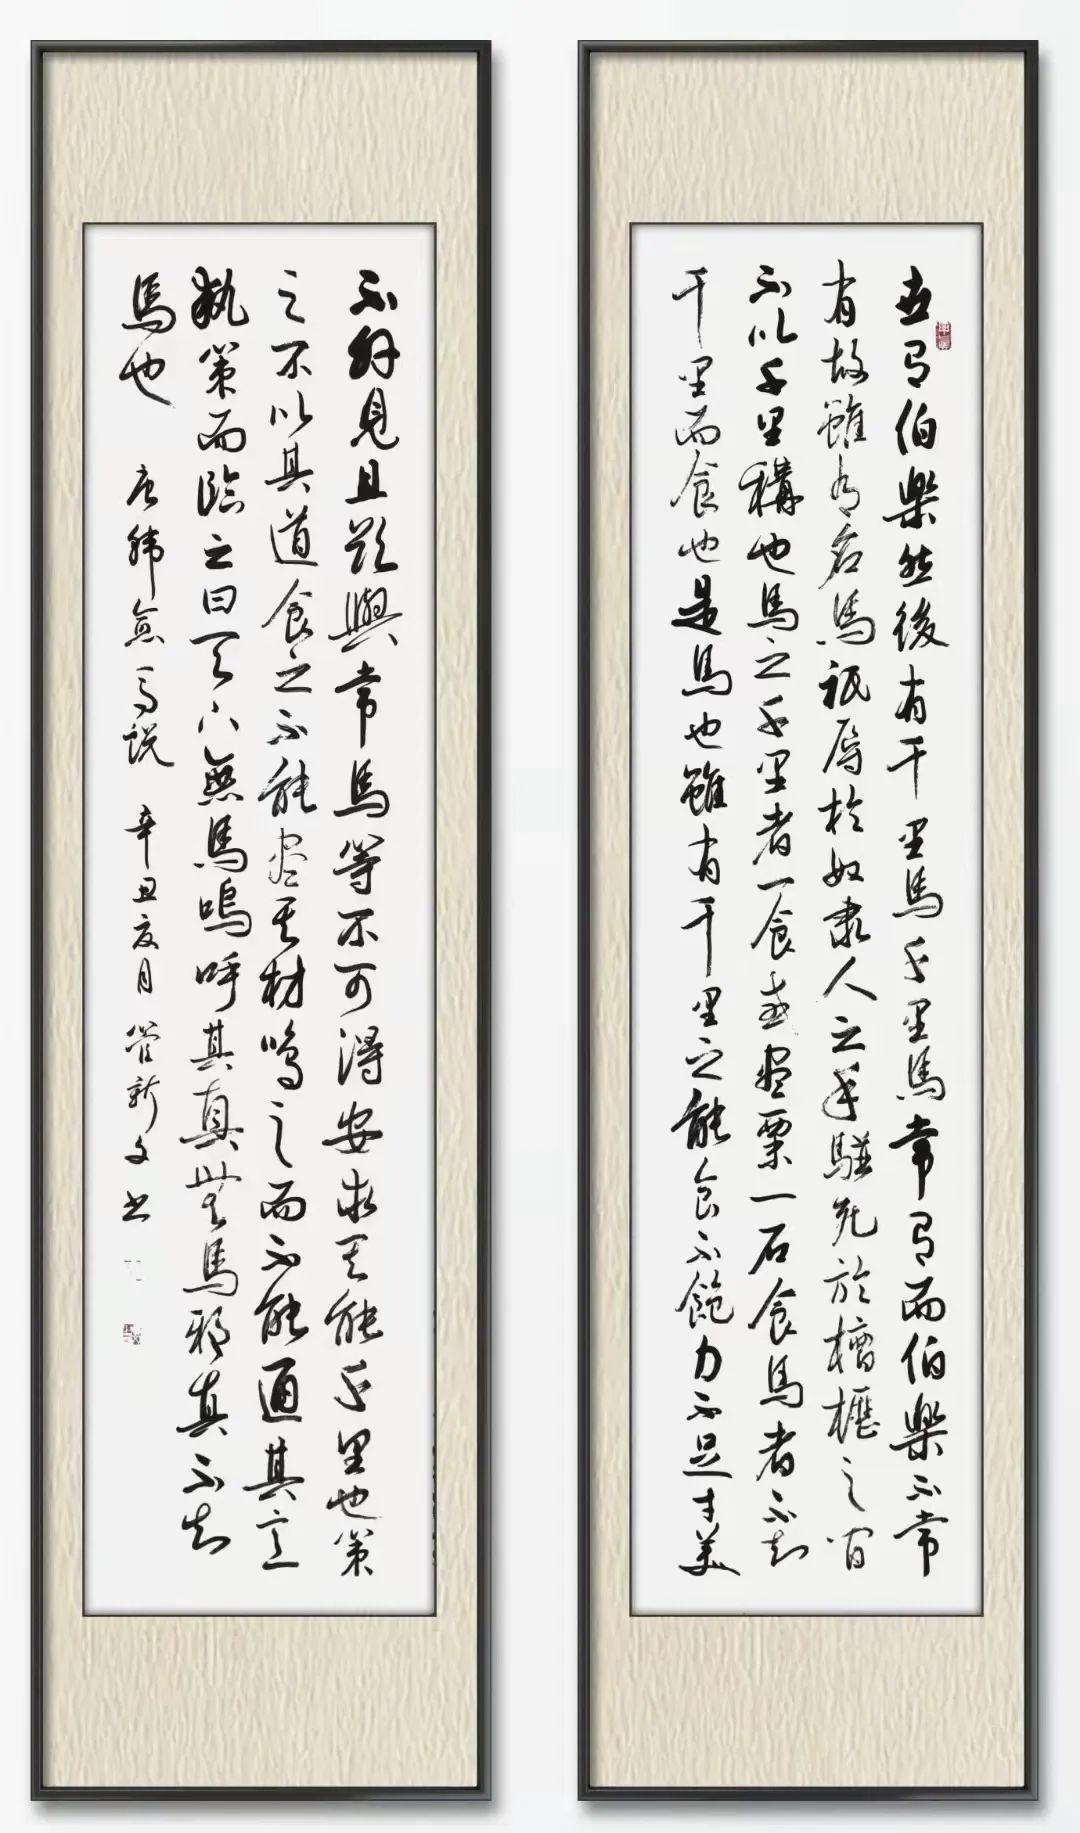 世有伯樂然後有千里馬千里馬常有而伯樂不常
有故雖有名馬祇辱於奴隶人之手駢死於槽櫪之间
不以千里稱也馬之千里者一食或盡粟一石食馬者不知
千里而食也是馬也雖有千里之能食不飽力不足才美
不外見且欲與常馬等不可得安求其能千里也策
之不以其道食之不能盡其材鳴之而不能通其意
執策而臨之曰天下無馬嗚呼其真無馬邪真不知
馬也
唐韩愈马説 辛丑夏月 管新文书